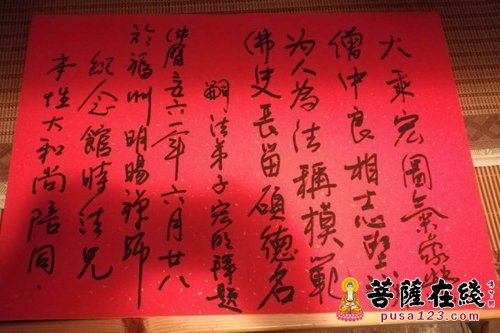 大乘宏圖氣
僧中良相志堅
为人為法稱模範
佛史長留碩德名
嗣法弟子宏明拜題
佛曆六月廿八
於福州明暘禅師
紀念館時法兄
本性大和尚陪同.
菩薩在綫
pusa123.com